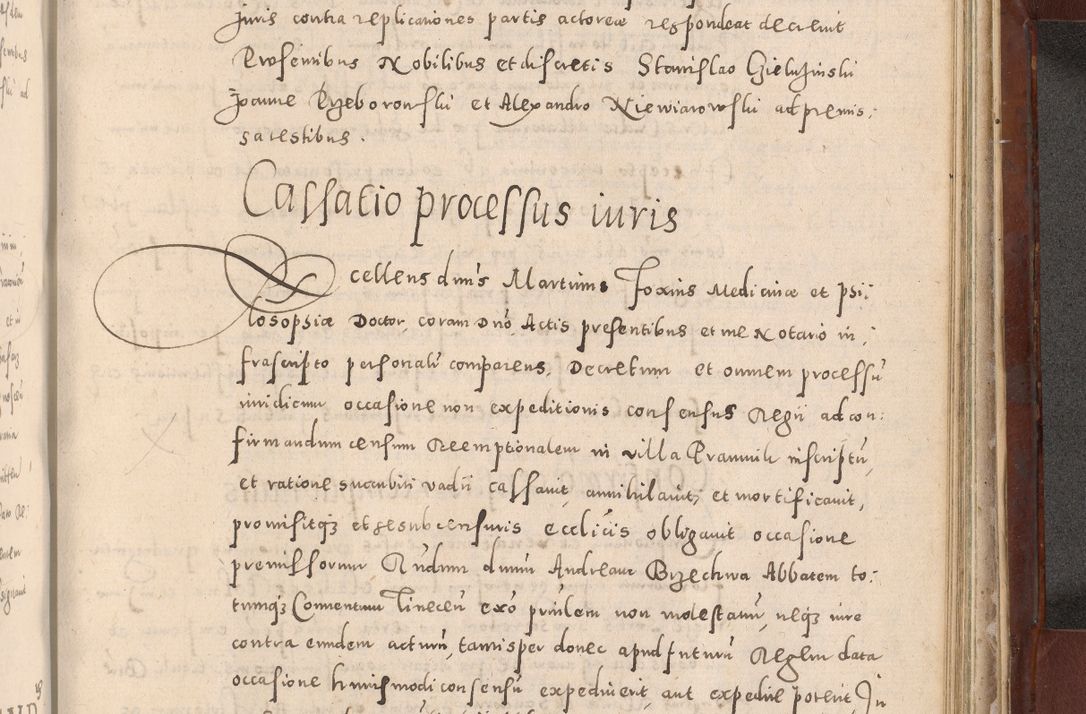 Juris contra replicationes partis actoreæ respondeat decrevit
Presentibus Nobilibus et discretis Stanislao Gielużinski
Joanne Brzeborowski et Alexandro Niewiarowski ad premis:
sa testibus.
Cassatio processus iuris
Excellens dnus Martinus Foxius Medicinæ et psi:
losophiæ Doctor, coram Dno Actis presentibus et me Notario in:
frascripto personalr comparens, Decretum et omnem processū
iuridicum occasione non expeditionis consensus Regii ad con:
firmandum censum Reemptionalem in villa inscriptū,
et ratione succubiti vadii cassavit, annihilavit, et mortificavit,
promisitqz et se sub censuris ecclicis obligavit occasione
premissorum Rndum dnum Andream Brzechwa Abbatem to:
tumqz Conventum Tinecen exo prnlem non molestatur, neqz iure
contra eundem acturū, tamisper donec apud futurū Regem data
occasione huiusmodi consensū expedierit, aut expedire poterit, In